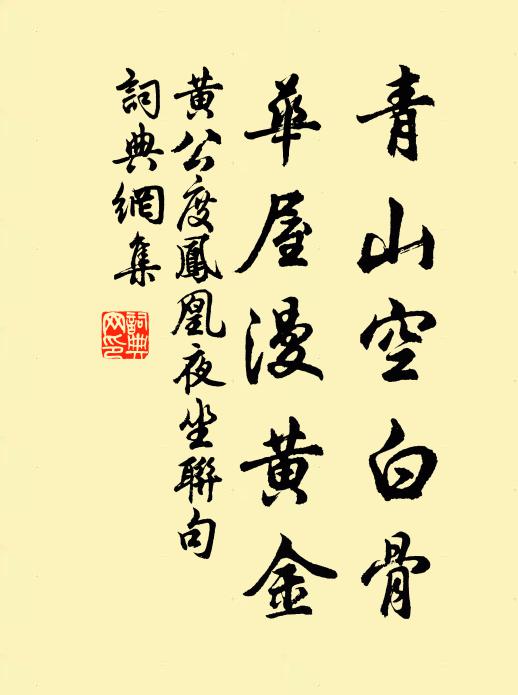 青山空白骨
華屋漫黄金
黄公度鳳凰夜坐聯句
詞典網集
詞典网印